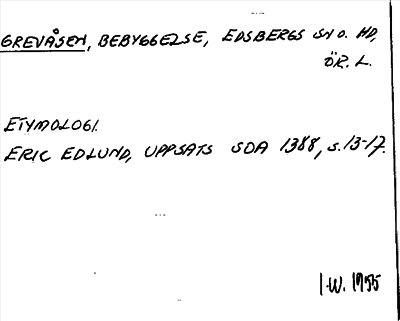 GREVÅSEN, BEBYGGELSE, EDSBERGS SN O. HD,
ÖR. L.
ETYMOLOGI.
ERIC EDLUND, UPPSATS SOA 1388, S. 13-17.
I.W. 1955